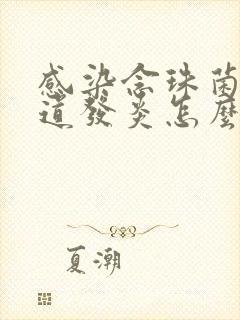 感染念珠菌
道發炎怎麼
夏潮